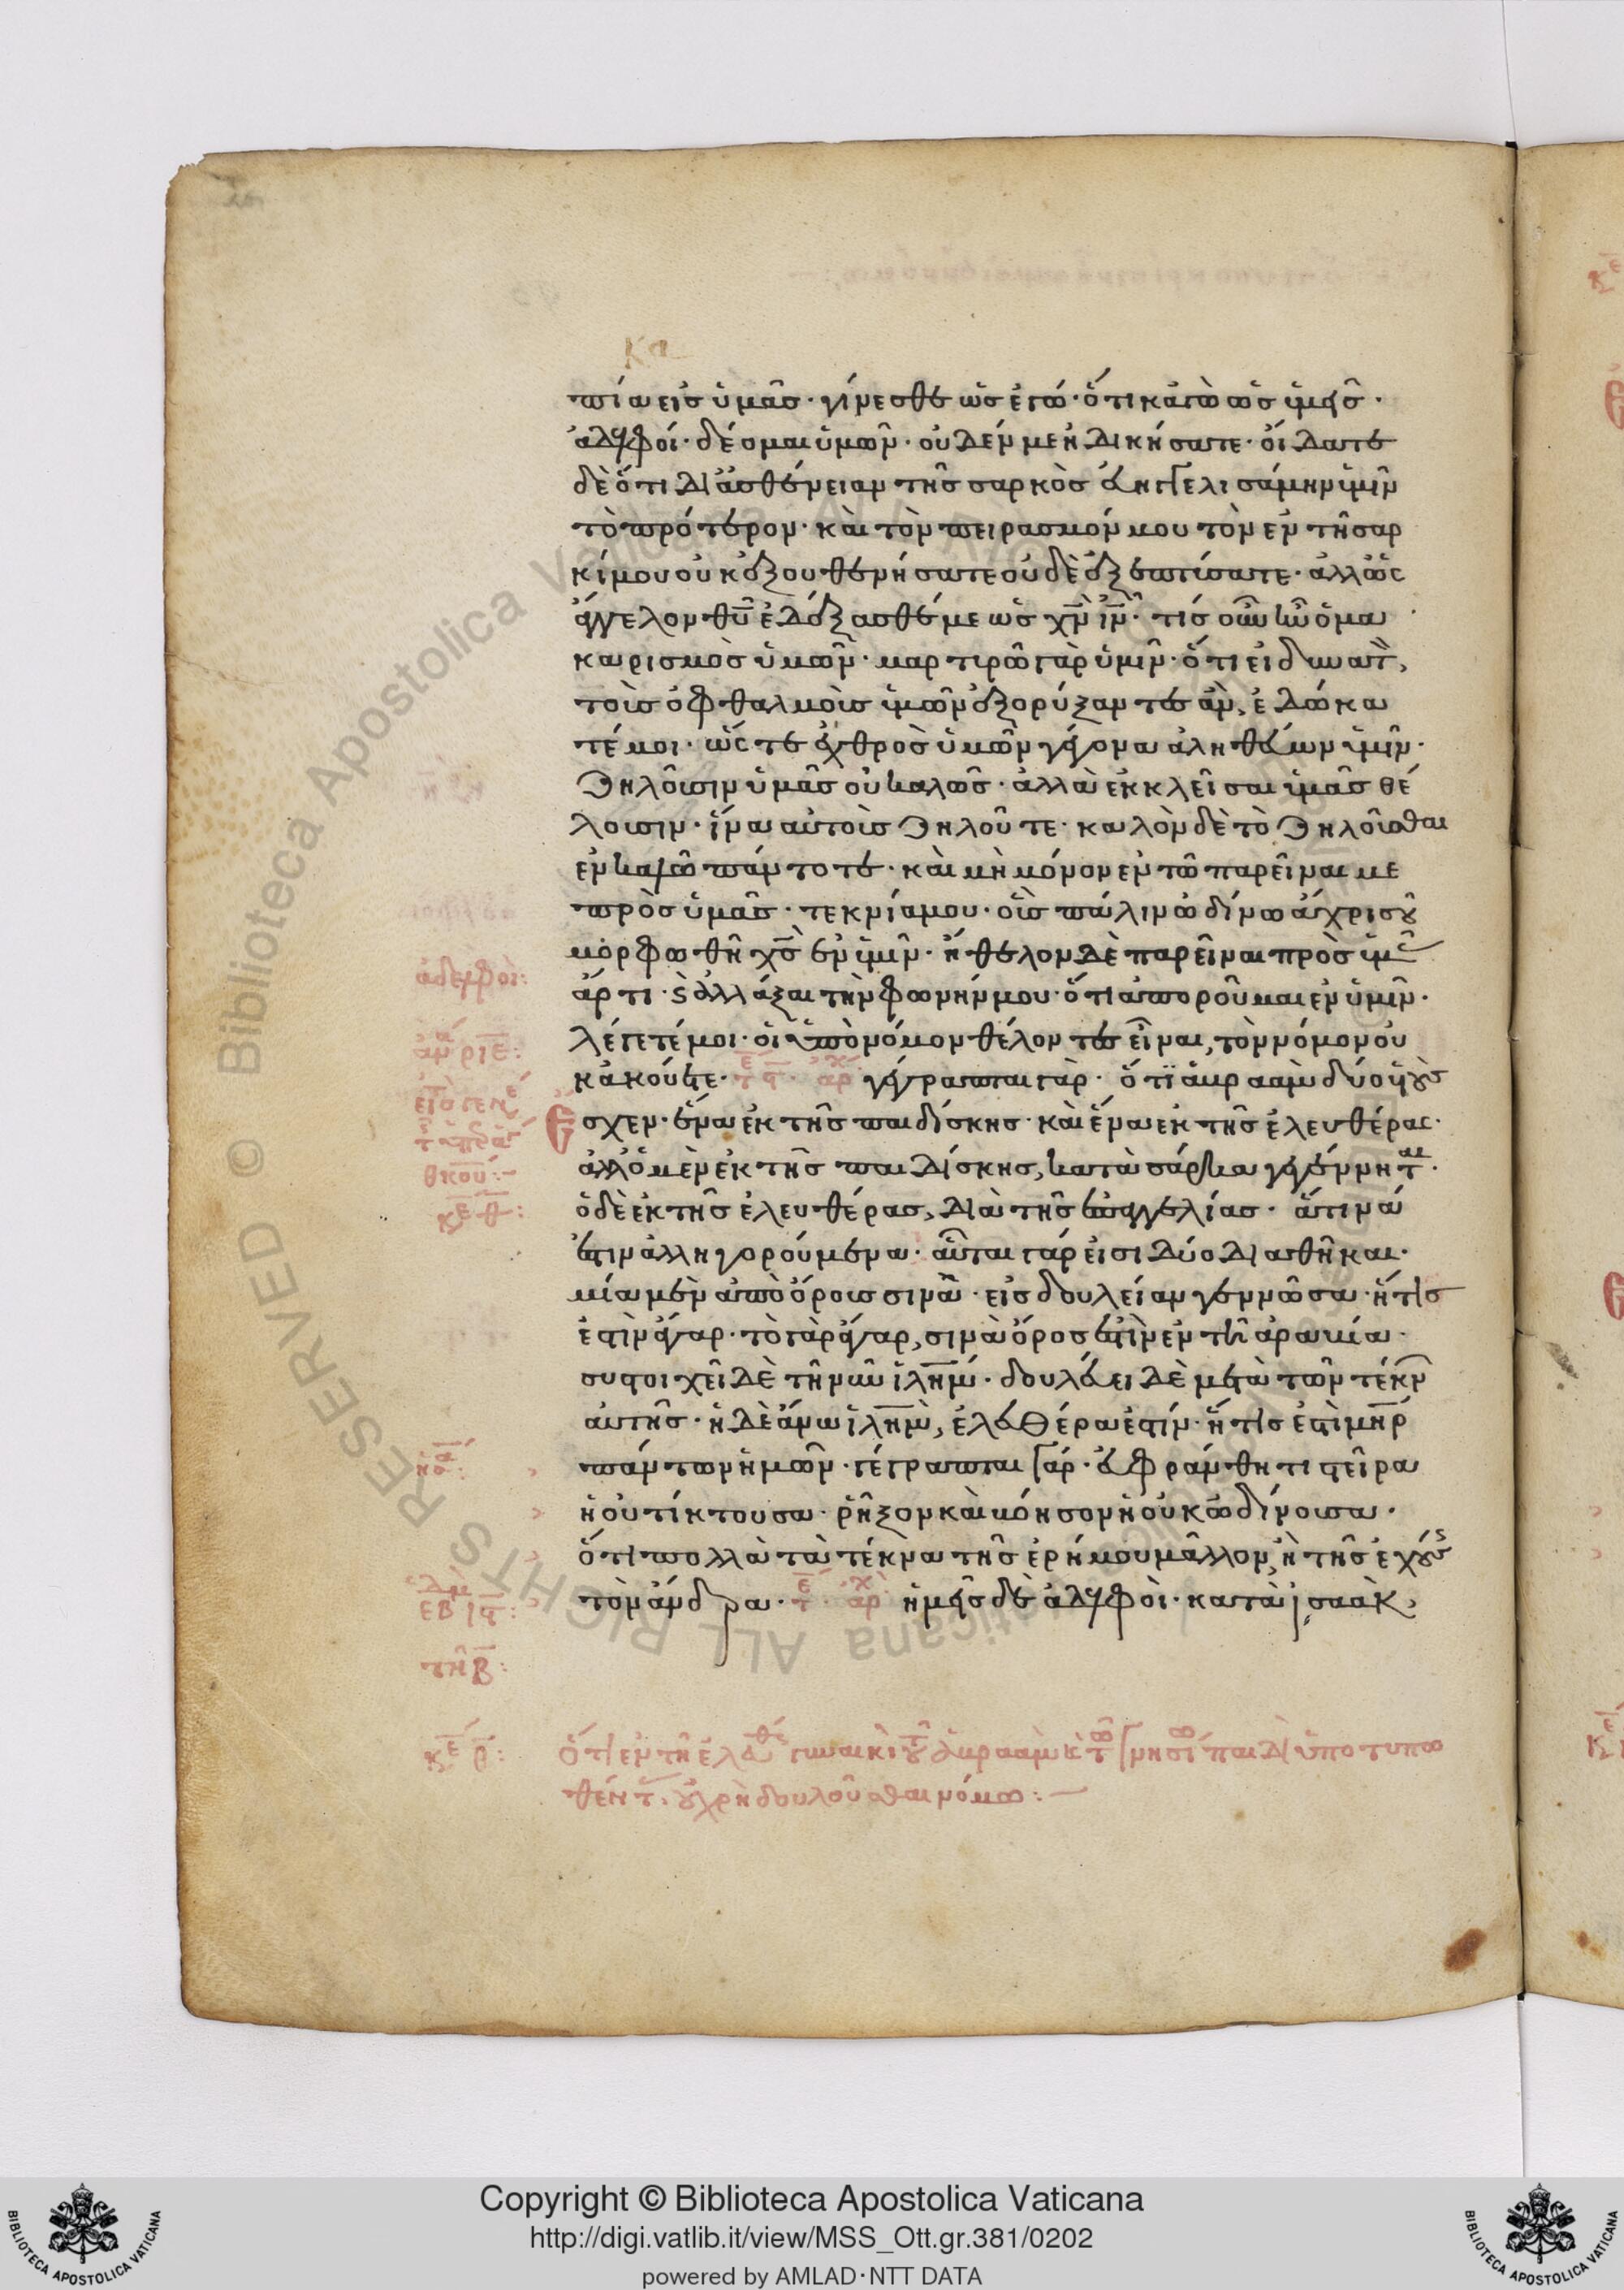 κα
πία εἰς ὑμᾶς· γίνεσθε ὡς ἐγώ· ὅτι κἀγὼ ὡς ὑμεῖς·
ἀδελφοί· δέομαι ὑμῶν· οὐδέν με ἠδικήσατε· οἴδατε
δὲ ὅτι δι ἀσθένειαν τῆς σαρκὸς εὐηγγελισάμην ὑμῖν
τὸ πρότερον· καὶ τὸν πειρασμόν μου τὸν ἐν τῇ σαρ
κί μου οὐκ ἐξουθενήσατε οὐδὲ ἐξεπτύσατε· ἀλλ ὡς
ἄγγελον θ̅υ̅ ἐδέξασθέ με ὡς χ̅ν̅ ι̅ν̅· τίς οὖν ἦν ὁ μα
καρισμὸς ὑμῶν· μαρτυρῶ γὰρ ὑμῖν· ὅτι εἰ δυνατὸν,
τοὺς ὀφθαλμοὺς ὑμῶν ἐξορύξαντες ἂν, ἐδώκα
τέ μοι· ὥστε ἐχθρὸς ὑμῶν γέγονα ἀληθεύων ὑμῖν·
Ζηλοῦσιν ὑμᾶς οὐ καλῶς· ἀλλὰ ἐκκλεῖσαι ὑμᾶς θέ
λουσιν· ἵνα αὐτοὺς ζηλοῦτε· καλὸν δὲ τὸ ζηλοῦσθαι
ἐν καλῷ πάντοτε· καὶ μὴ μόνον ἐν τῷ παρεῖναι με
πρὸς ὑμᾶς· τεκνία μου· οὓς πάλιν ὠδίνω ἄχρις οὗ
μορφωθῇ χ̅ς̅ ἐν ὑμῖν· ἤθελον δὲ παρεῖναι πρὸς ὑμᾶς
ἄρτι· καὶ ἀλλάξαι τὴν φωνήν μου· ὅτι ἀποροῦμαι ἐν ὑμῖν·
λέγετέ μοι· οἱ ὑπὸ νόμον θέλοντες εἶναι, τὸν νόμον οὐ
κ ἀκούετε· γέγραπται γὰρ· ὅτι ἀβραὰμ δύο υἱοὺς
ἔσχεν· ἕνα ἐκ τῆς παιδίσκης· καὶ ἕνα ἐκ τῆς ἐλευθέρας·
ἀλλ ὁ μὲν ἐκ τῆς παιδίσκης, κατὰ σάρκα γεγέννηται·
ὁ δὲ ἐκ τῆς ἐλευθέρας, διὰ τῆς ἐπαγγελίας· ἅτινά
ἐστιν ἀλληγορούμενα· αὗται γάρ εἰσι δύο διαθῆκαι·
μία μὲν ἀπὸ ὄρους σινᾶ· εἰς δουλείαν γεννῶσα· ἥτις
ἐστὶν ἄγαρ· τὸ γὰρ ἄγαρ, σινὰ ὄρος ἐστὶν ἐν τῇ ἀραβία·
συστοιχεῖ δὲ τῇ νῦν ἰ̅λ̅η̅μ̅· δουλεύει δὲ μετὰ τῶν τέκν
αὐτῆς· ἡ δὲ ἄνω ἰ̅λ̅η̅μ̅, ἐλευθέρα ἐστίν· ἥτις ἐστὶ μ̅η̅ρ̅
πάντων ἡμῶν· γέγραπται γάρ· εὐφράνθητι στεῖρα
ἡ οὐ τίκτουσα· ῥῆξον καὶ βόησον ἡ οὐκ ὠδίνουσα·
ὅτι πολλὰ τὰ τέκνα τῆς ἐρήμου μᾶλλον, ἢ τῆς ἐχούσης
τὸν ἄνδρα· ἡμεῖς δὲ ἀδελφοὶ· κατὰ ἰσαὰκ
ἀδελφοὶ:
τῇ β:
ὅτι ἐν τῇ ἐλευθέ γυναικὶ τοῦ ἀβραὰμ καὶ τῷ γνησίῳ παιδὶ ὑποτυπω
θέντ· οὐ χρὴ δουλοῦσθαι νόμω:
Copyright © Biblioteca Apostolica Vaticana
http://digi.vatlib.it/view/MSS_Ott.gr.381/0202
powered by AMLAD·NTT DATA